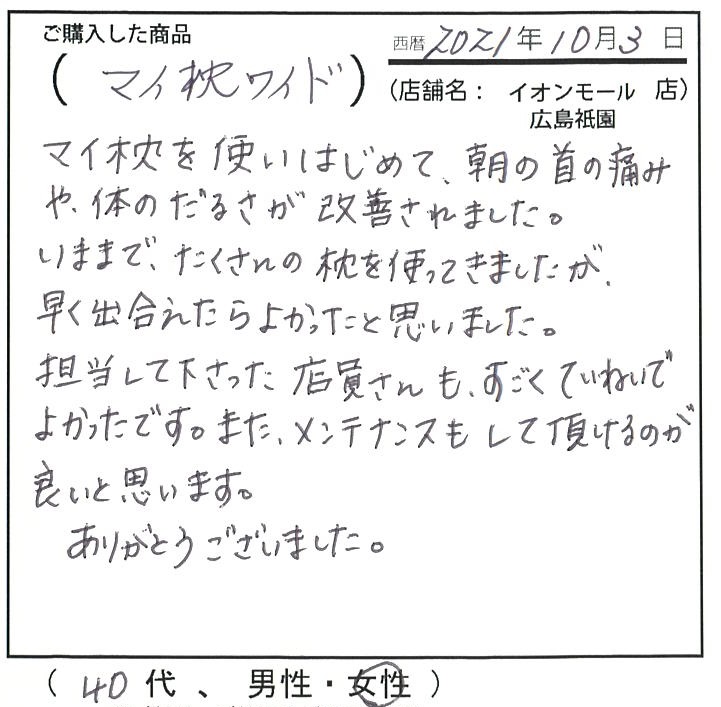 ご購入した商品
西暦 2021年10月3日
( マイ枕ワイド )
(店舗名: イオンモール 店)
広島祇園
マイ枕を使いはじめて、朝の首の痛み
や、体のだるさが改善されました。
いままで、たくさんの枕を使ってきましたが、
早く出合えたらよかったと思いました。
担当して下さった店員さんも、すごくていねいで
よかったです。また、メンテナンスもして頂けるのが
良いと思います。
ありがとうございました。
( 40代 、 男性・女性 )